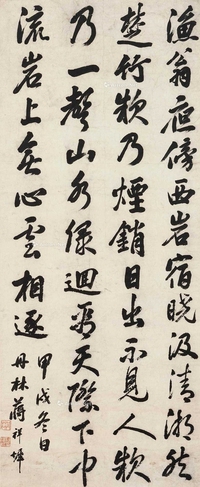 漁翁夜傍西岩宿曉汲清湘然
楚竹欸乃煙銷日出不見人欸
乃一聲山水綠迴看天際下中
流岩上無心雲相逐
甲戌冬日
丹林蔣祥墀